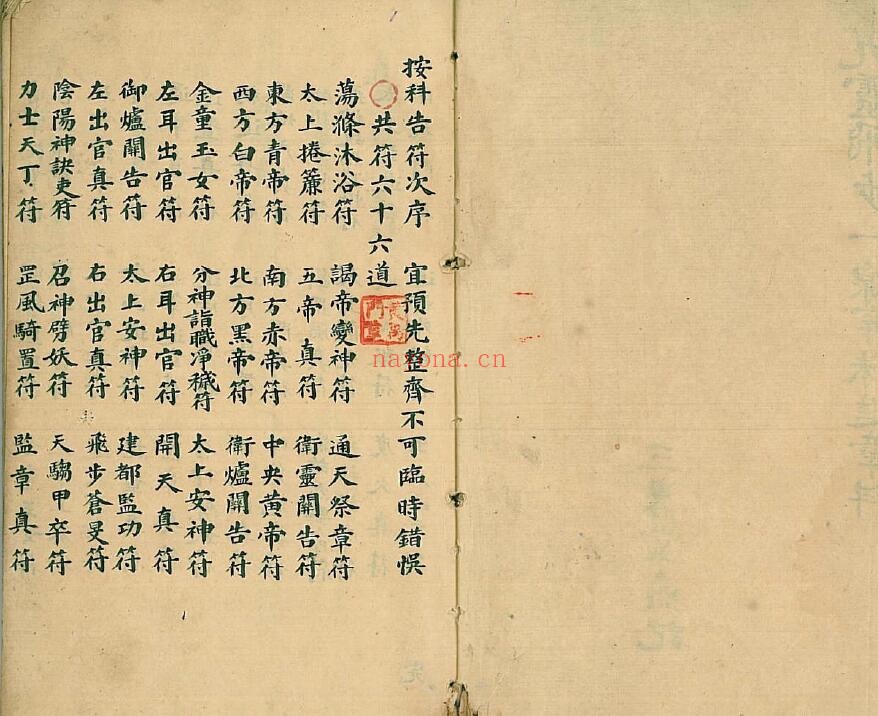 按科告符次序 宜預先整齊不可臨時錯悞
共符六十六道
蕩滌沐浴符 謁帝變神符 通天祭章符
太上捲簾符 五帝真符 衛靈關告符
東方青帝符 南方赤帝符 中央黃帝符
西方白帝符 北方黑帝符 衛爐關告符
金童玉女符 分神詣職淨穢符 太上安神符
左耳出官符 右耳出官符 開天真符
御爐關告符 太上安神符 建都監功符
左出官真符 右出官真符 飛步蒼旻符
陰陽神訣吏符 召神劈妖符 天騶甲卒符
力士天丁符 罡風騎置符 監章真符
naxona.cn